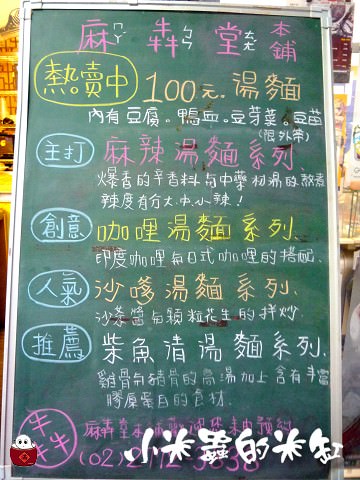 麻犇堂 本鋪
ㄇㄚˊ ㄅㄣ ㄊㄤˊ
熱賣中 100元.湯麵
內有豆腐。鴨血。豆芽菜。豆苗
(限外帶)
主打 麻辣湯麵系列、
爆香的辛香料与中藥材湯的熬煮
辣度有分大.中.小辣!
創意 咖哩湯麵系列、
印度咖哩与日式咖哩的搭配、
人氣 沙嗲湯麵系列、
沙茶醬与顆粒花生的拌炒、
推薦 柴魚清湯麵系列、
雞骨与豬骨的高湯加上含有丰富
膠原蛋白的食材、
牛牛牛 麻犇堂本鋪歡迎您來電預約
小米蟲的米缸